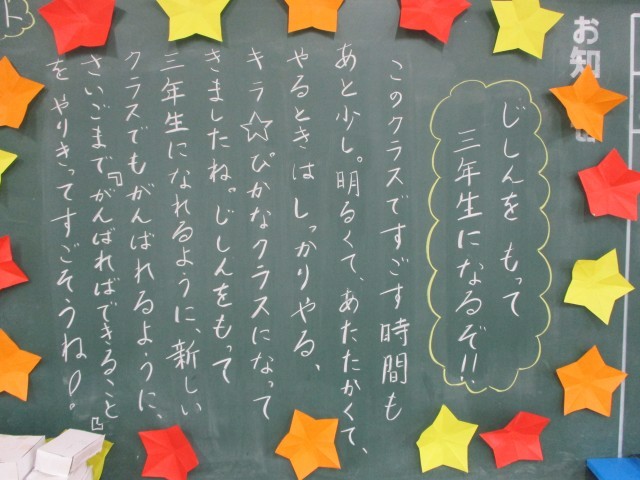 お知
じしんを もって
三年生になるぞ!!
このクラスですごす時間も
あと少し。明るくて、あたたかくて、
やるときは しっかりやる、
キラ☆ぴかなクラスになって
きましたね。じしんをもって
三年生になれるように、新しい
クラスでもがんばれるように、
さいごまで『がんばればできること』
をやりきってすごそうね!。